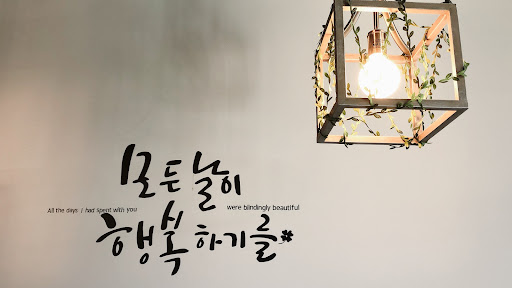 모든 날이
All the days I had spent with you
were blindingly beautiful
행복하기를